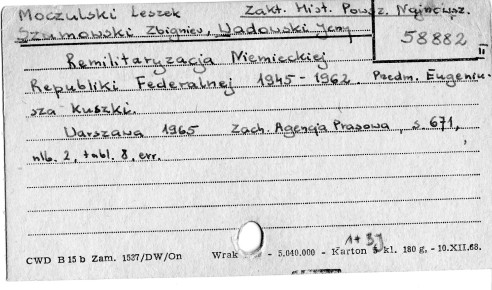 Moczulski Leszek Zakł. Hist. Powsz. Najnowsz.
Szumowski Zbigniew, Wadowski Jerzy
58882
II
Remilitaryzacja Niemieckiej
Republiki Federalnej 1945-1962. Przedm. Eugeniu-
sza Kuszki.
Warszawa 1965 Zach. Agencja Prasowa, s. 671,
nlb. 2, tabl. 8, err.
1+3j
CWD B 15 b Zam. 1537/DW/On Wrak - 5.040.000 - Karton kl. 180 g. - 10.XII.68.